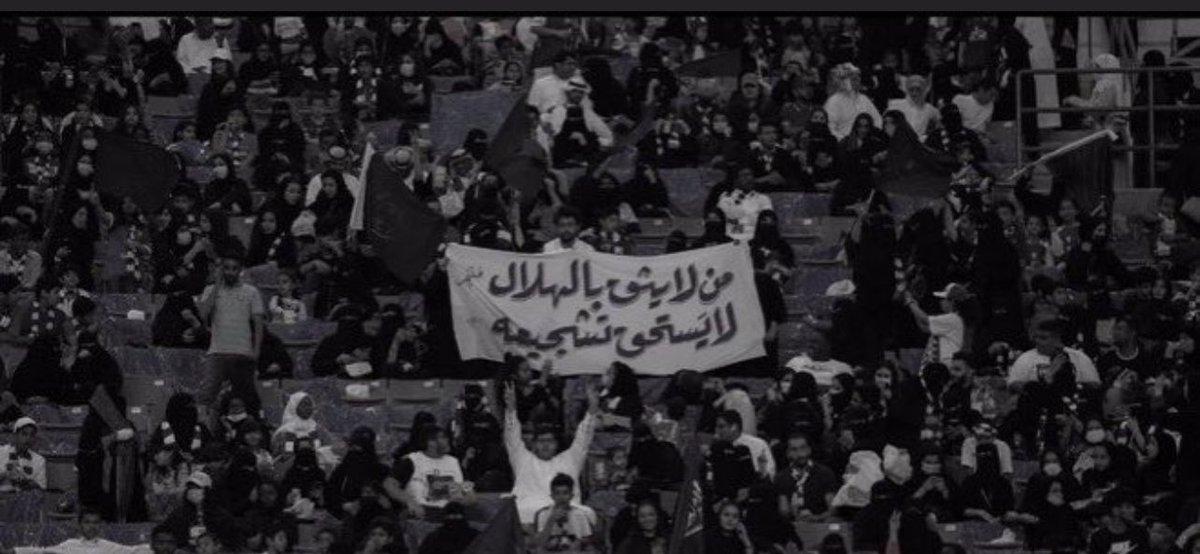 من لا يثق بالهلال
لا يَستحق تشجيعه